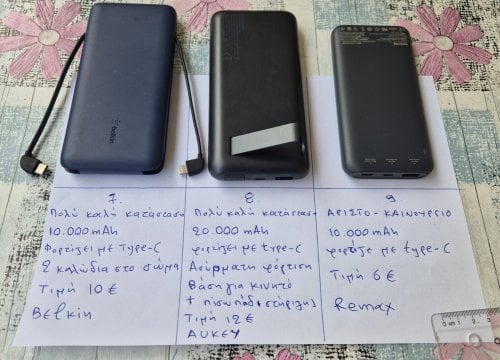 belkin
7
Πολύ καλή κατάσταση
10.000 mAh
Φορτίζει με Type-C
2 καλώδια στο σώμα
Τιμή 10 €
BElkin
8
Πολύ καλή κατάσταση
20.000 mAh
φορτίζει με type-C
Ασύρματη φόρτιση
Βάση για κινητό
Τιμή 12 €
AUKEY
9
ΑΡΙΣΤΟ - ΚΑΙΝΟΥΡΓΙΟ
10.000 mAh
με type-C
Τιμή 6 €
Remax